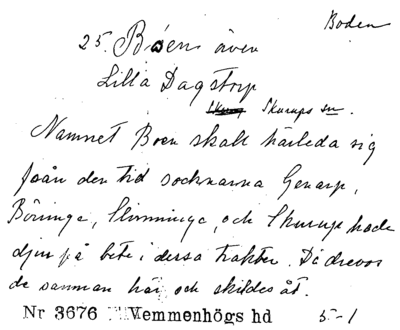 Boden
25. Boen även
Lilla Dagstorp
Skurups sn.
Namnet Boen skall härleda sig
från den tid socknarna Genarp,
Böringe, Slimminge, och Skurup hade
djur på bete i dessa trakter. Då drevos
de samman här och skildes åt.
Nr 3676 Vemmenhögs hd 5-1